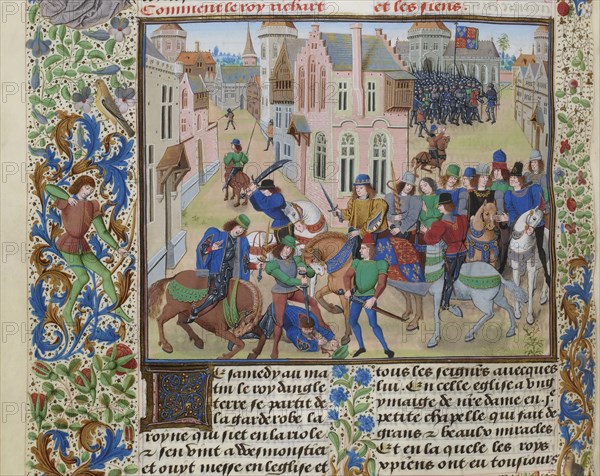 Comment le roy richart et les siens.
Le samedy au ma
tin le roy dangle
terre se partit de
la garderobe la
royne qui siet en lariole
& sen vint a Wesmonstier
et ouyt messe en leglise et
tous les seignrs avecques
lui. En celle eglise a vng
ymaige de nre dame en .j.
petite chapelle qui fait de
grans & beaulx miracles
Et en la quele les roys
en ont eu tousiours